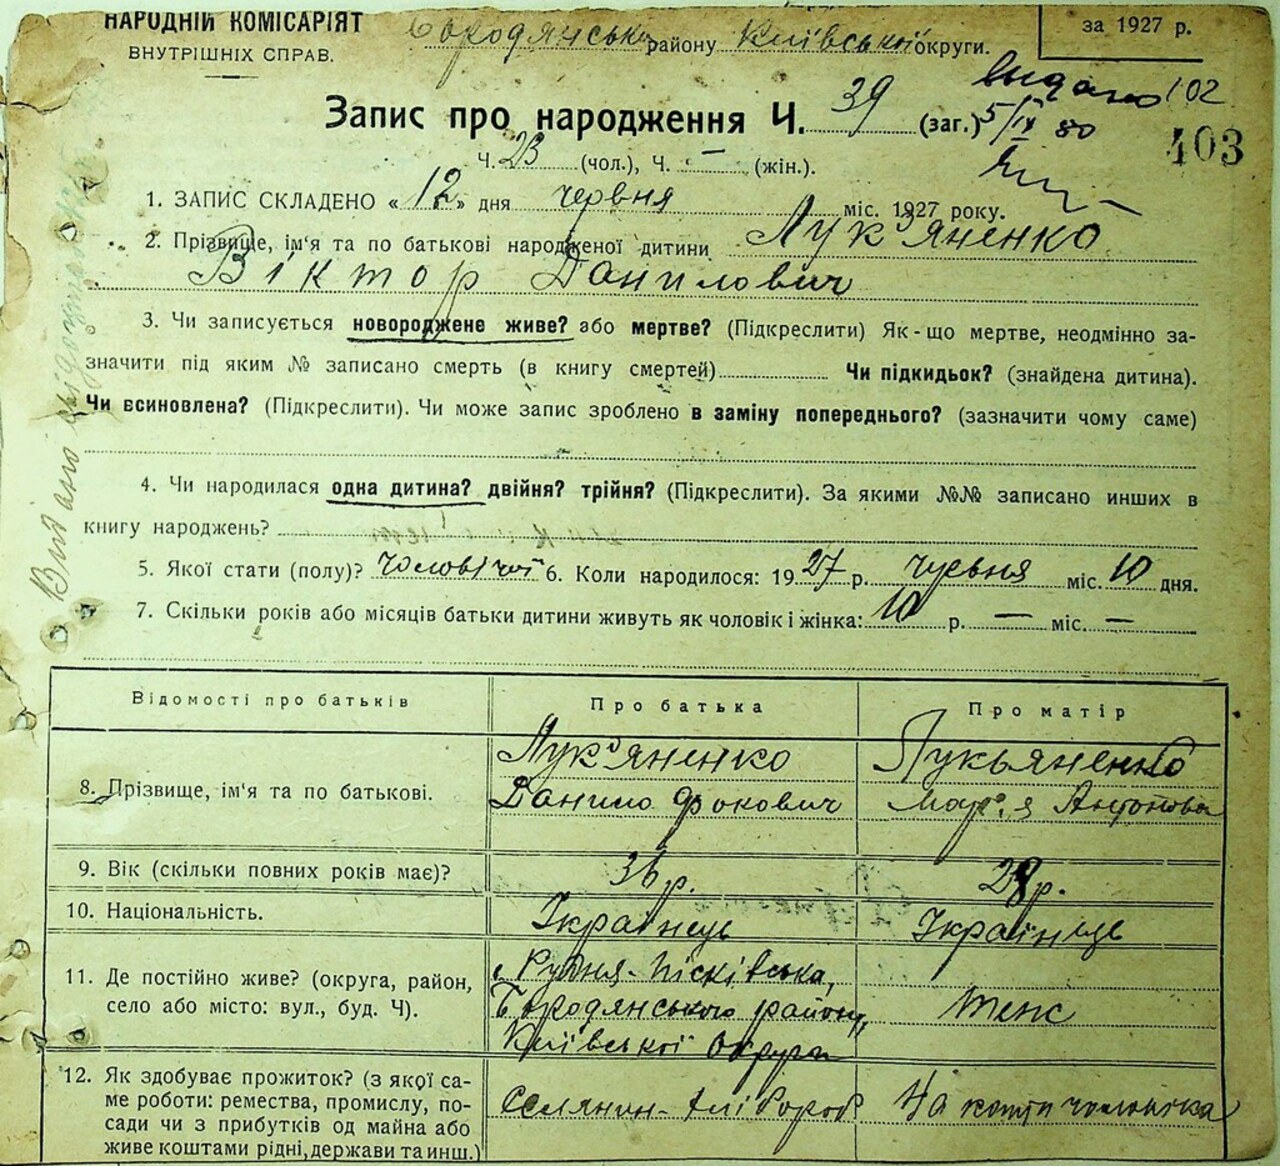 НАРОДНІЙ КОМІСАРІЯТ
ВНУТРІШНІХ СПРАВ.
Бородянськ району Київської округи.
за 1927 р.
видано 102
5/IX 80
403
Запис про народження Ч. 39 (заг.)
Ч. 23 (чол.), Ч. — (жін.).
1. ЗАПИС СКЛАДЕНО « 12 » дня червня міс. 1927 року.
2. Прізвище, ім'я та по батькові народженої дитини Лук'яненко
Віктор Данилович
3. Чи записується новороджене живе? або мертве? (Підкреслити) Як-що мертве, неодмінно за-
значити під яким № записано смерть (в книгу смертей) Чи підкидьок? (знайдена дитина).
Чи всиновлена? (Підкреслити). Чи може запис зроблено в заміну попереднього? (зазначити чому саме)
4. Чи народилася одна дитина? двійня? трійня? (Підкреслити). За якими №№ записано инших в
книгу народжень?
5. Якої стати (полу)? Чоловічої 6. Коли народилося: 1927 р. червня міс. 10 дня.
7. Скільки років або місяців батьки дитини живуть як чоловік і жінка: 10 р. — міс. —
Видано свідоцтво
Відомості про батьків Про батька Про матір
8. Прізвище, ім'я та по батькові.
Лук'яненко
Данило Фокович
Лукьяненко
Мар'я Антонова
9. Вік (скільки повних років має)? 36 р. 28 р.
10. Національність. Українець Українець
11. Де постійно живе? (округа, район,
село або місто: вул., буд. Ч).
с Рудня-Пісківська,
Бородянського району,
Київської Округи
Теж
12. Як здобуває прожиток? (з якої са-
ме роботи: ремества, промислу, по-
сади чи з прибутків од майна або
живе коштами рідні, держави та инш.)
Селянин-хлібороб
На кошти чоловіка